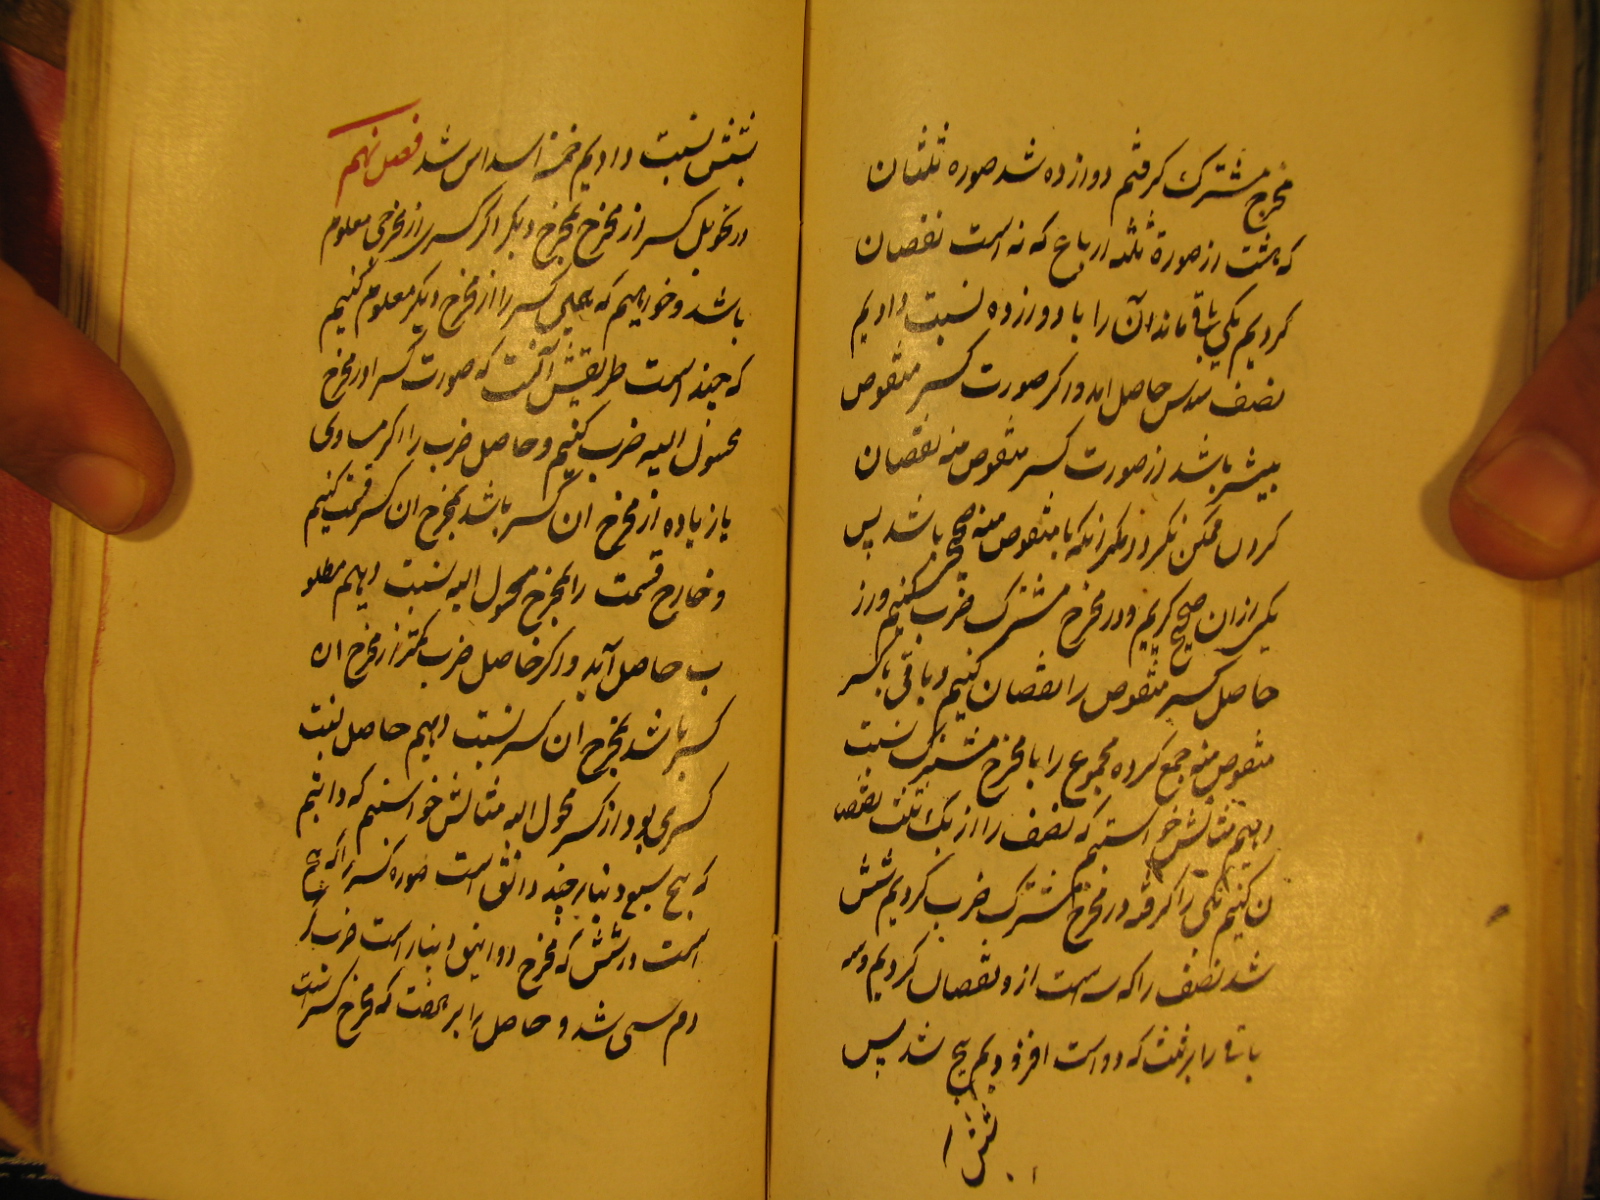 مخرج مشترک گرفتیم دوازده شد صوره ثلثان
که هشت از صورة ثلثه ارباع که نه است نقصان
کردیم یکی باقیماند آن را با دوازده نسبت دادیم
نصف سدس حاصل امد و اگر صورت کسر منقوص
بیشتر باشد از صورت کسر منقوص منه نقصان
کردن ممکن نگردد مگر انکه با منقوص منه صحیح باشد پس
یکی از ان صحیح گریم و در مخرج مشترک ضرب کنیم و از
حاصل کسر منقوص را نقصان کنیم و باقی با کسر
منقوص منه جمع کرده مجموع را با مخرج مشترک نسبت
دهیم مثالش خواستیم که نصف را از یک ثلث نقصا
ن کنیم یکی را گرفته در مخرج مشترک ضرب کردیم شش
شد نصف را که سه است از و نقصان کردیم و سه
باقی را بر ثلث که دو است افزودیم پنج شد پس
بشش نسبت دادیم خمسة اسداس شد فصل نهم
در تحویل کسر از مخرج بمخرج دیگر اگر کسری از مخرجی معلوم
باشد و خواهیم که همان کسر را از مخرج دیگر معلوم کنیم
که چند است طریقش آنست که صورت کسر را در مخرج
محول الیه ضرب کنیم و حاصل ضرب را اگر مساوی
یا زیاده از مخرج ان کسر باشد بمخرج ان کسر قسمت کنیم
و خارج قسمت را بمخرج محول الیه نسبت دهیم مطلو
ب حاصل آید و اگر حاصل ضرب کمتر از مخرج ان
کسر باشد بمخرج ان کسر نسبت دهیم حاصل نسبت
کسری بود از کسر محول الیه مثالش خواستیم که دانیم
که پنج سبع دینار چند دانق است صوره کسر را که پنج
است در شش که مخرج دوانیق دینار است ضرب کر
دم سی شد و حاصل را بر هفت که مخرج کسر است